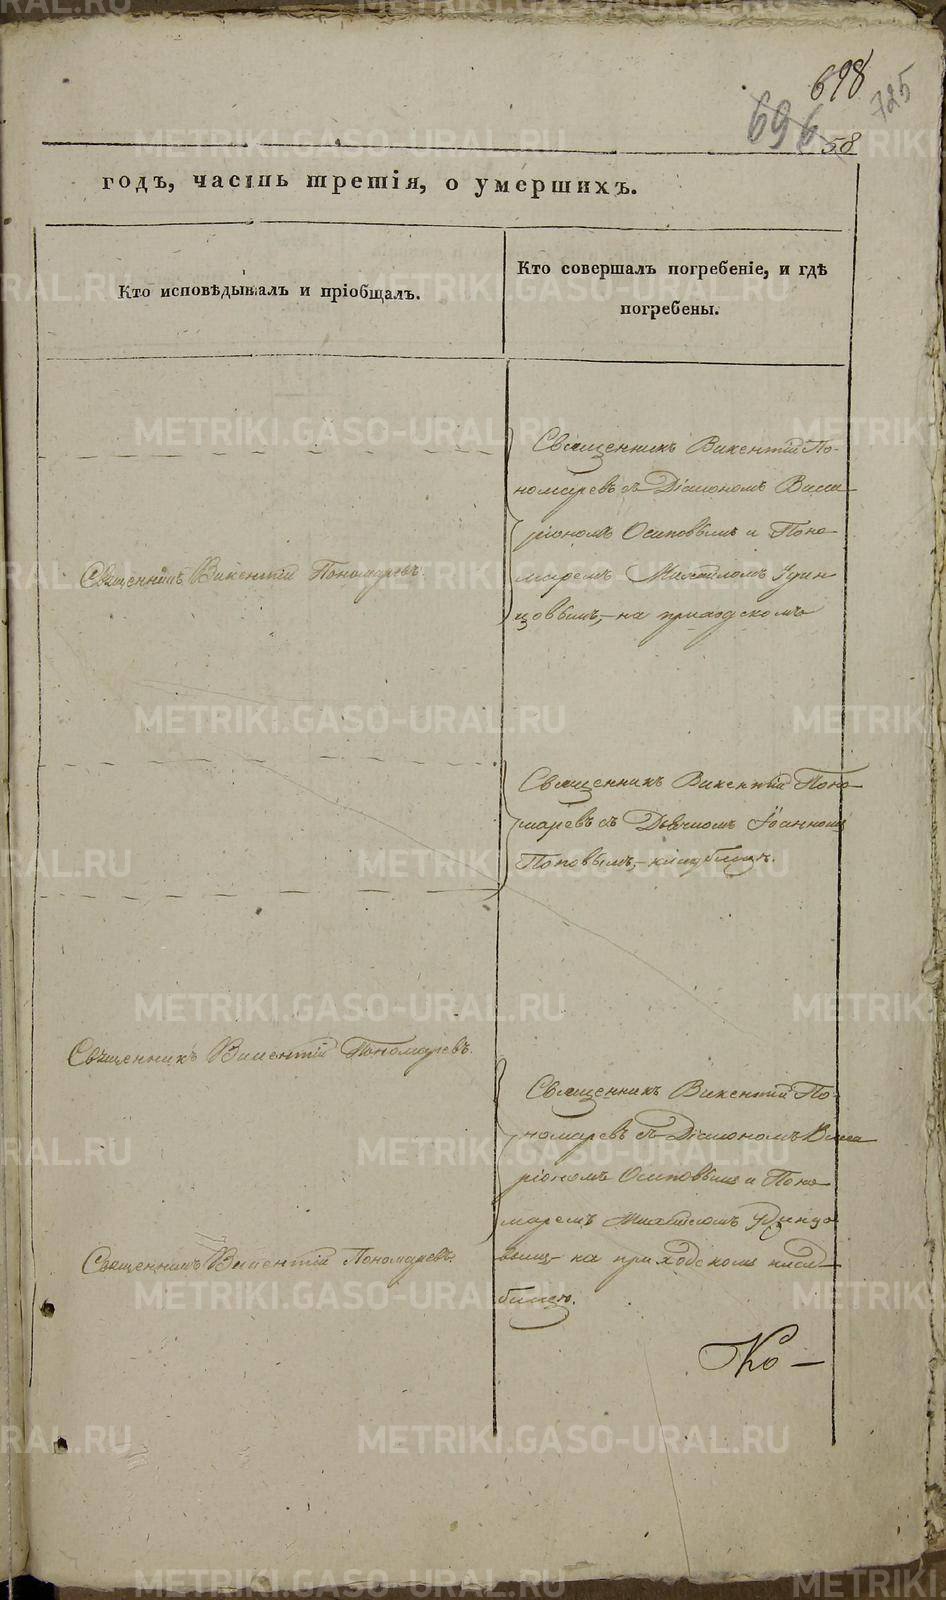 698
725
696
58
годъ, часть третія, о умершихъ.
Кто исповѣдывалъ и пріобщалъ.
Кто совершалъ погребеніе, и гдѣ
погребены.
Священникъ Викентій По-
номаревъ съ Діакономъ Висса
ріономъ Осиповымъ и Поно
маремъ Михаиломъ Удин
цовымъ, на приходскомъ
Священникъ Викентій Пономаревъ.
Священникъ Викентій Поно
маревъ съ Дьячкомъ Іоанномъ
Поповымъ, кладбищѣ.
Священникъ Викентій Пономаревъ.
Священникъ Викентій По-
номаревъ съ Діакономъ Висса
ріономъ Осиповымъ и Поно
маремъ Михаиломъ Удинцо
вымъ на приходскомъ клад-
бищѣ.
Священникъ Викентій Пономаревъ.
METRIKI.GASO-URAL.RU